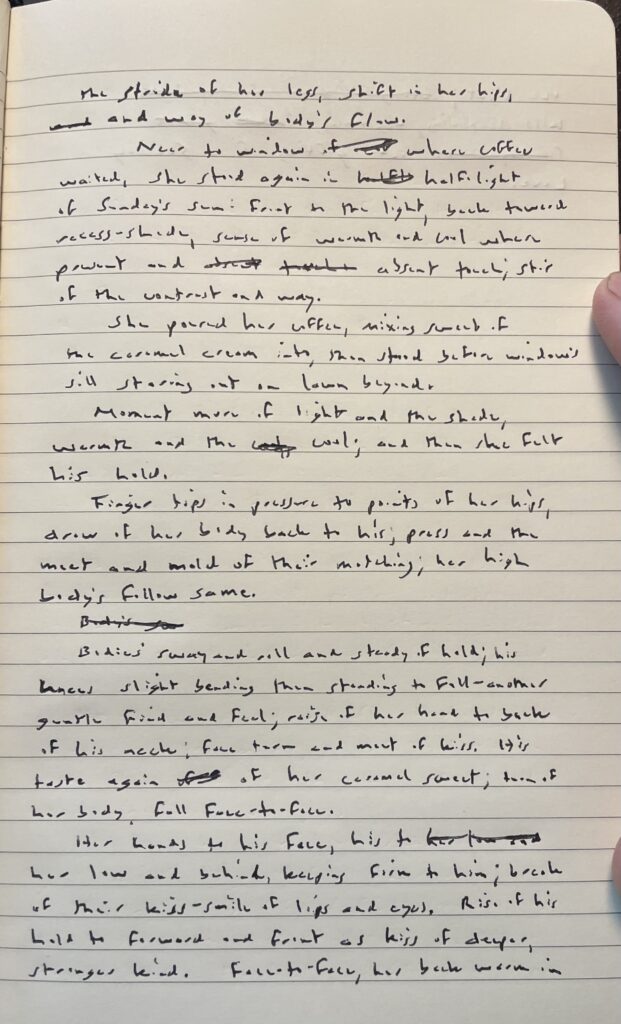 the stride of her legs, shift in her hips,
and way of body's flow.
Near to window of where coffee
waited, she stood again in half-light
of Sunday's sun: front to the light, back toward
recess-shade, sense of warmth and cool where
present and absent touch; stir
of the contrast and way.
She poured her coffee, mixing sweet of
the caramel cream into, then stood before window's
sill staring out on lawn beyond.
Moment more of light and the shade,
warmth and the cool; and then she felt
his hold.
Finger tips in pressure to points of her hips,
draw of her body back to his; press and the
meet and mold of their matching; her high
body's follow same.
Bodies' sway and roll and steady of hold; his
knees slight bending then standing to full-another
gentle find and feel; raise of her hand to back
of his neck; face turn and meet of kiss. His
taste again of her caramel sweet; turn of
her body, full face-to-face.
Her hands to his face, his to
her low and behind, keeping firm to him; break
of their kiss-smile of lips and eyes. Rise of his
hold to forward and front as kiss of deeper,
stronger kind. Face-to-face, her back warm in